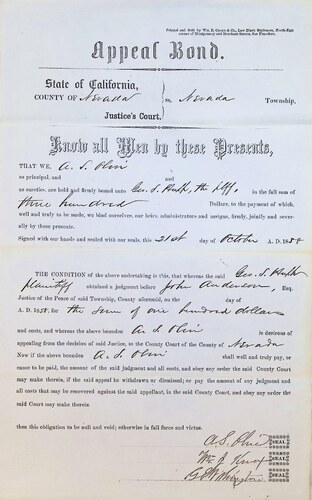 Printed and Sold by Wm. B. Cooke & Co., Law Blank Stationers, North-East
corner of Montgomery and Merchant Streets, San Francisco.
Appeal Bond.
State of California,
COUNTY OF Nevada ss. Nevada Township,
Justice's Court.
Know all Men by these Presents,
THAT WE, A. S. Olin
as principal, and and
as sureties, are held and firmly bound unto Geo. S. the Plff, in the full sum of
three hundred Dollars, to the payment of which,
well and truly to be made, we bind ourselves, our heirs, administrators and assigns, firmly, jointly and sev-
erally by these presents.
Signed with our hands and sealed with our seals, this 21st day of October A. D. 1858
THE CONDITION of the above undertaking is this, that whereas the said Geo. S.
plaintiff obtained a judgment before John Anderson, Esq.
Justice of the Peace of said Township, County aforesaid, on the day of
A. D. 1858, for the sum of one hundred dollars
and costs, and whereas the above bounden A. S. Olin is desirous of
appealing from the decision of said Justice, to the County Court of the County of Nevada
Now if the above bounden A. S. Olin shall well and truly pay, or
cause to be paid, the amount of the judgment and all costs, and obey any order the said County Court
may make therein, if the said appeal be withdrawn or dismissed; or pay the amount of any judgment and
all costs that may be recovered against the said appellant, in the said County Court, and obey any order the
said Court may make therein
then this obligation to be null and void; otherwise in full force and virtue.
A. S. Olin SEAL
Wm. J. Knox SEAL
SEAL